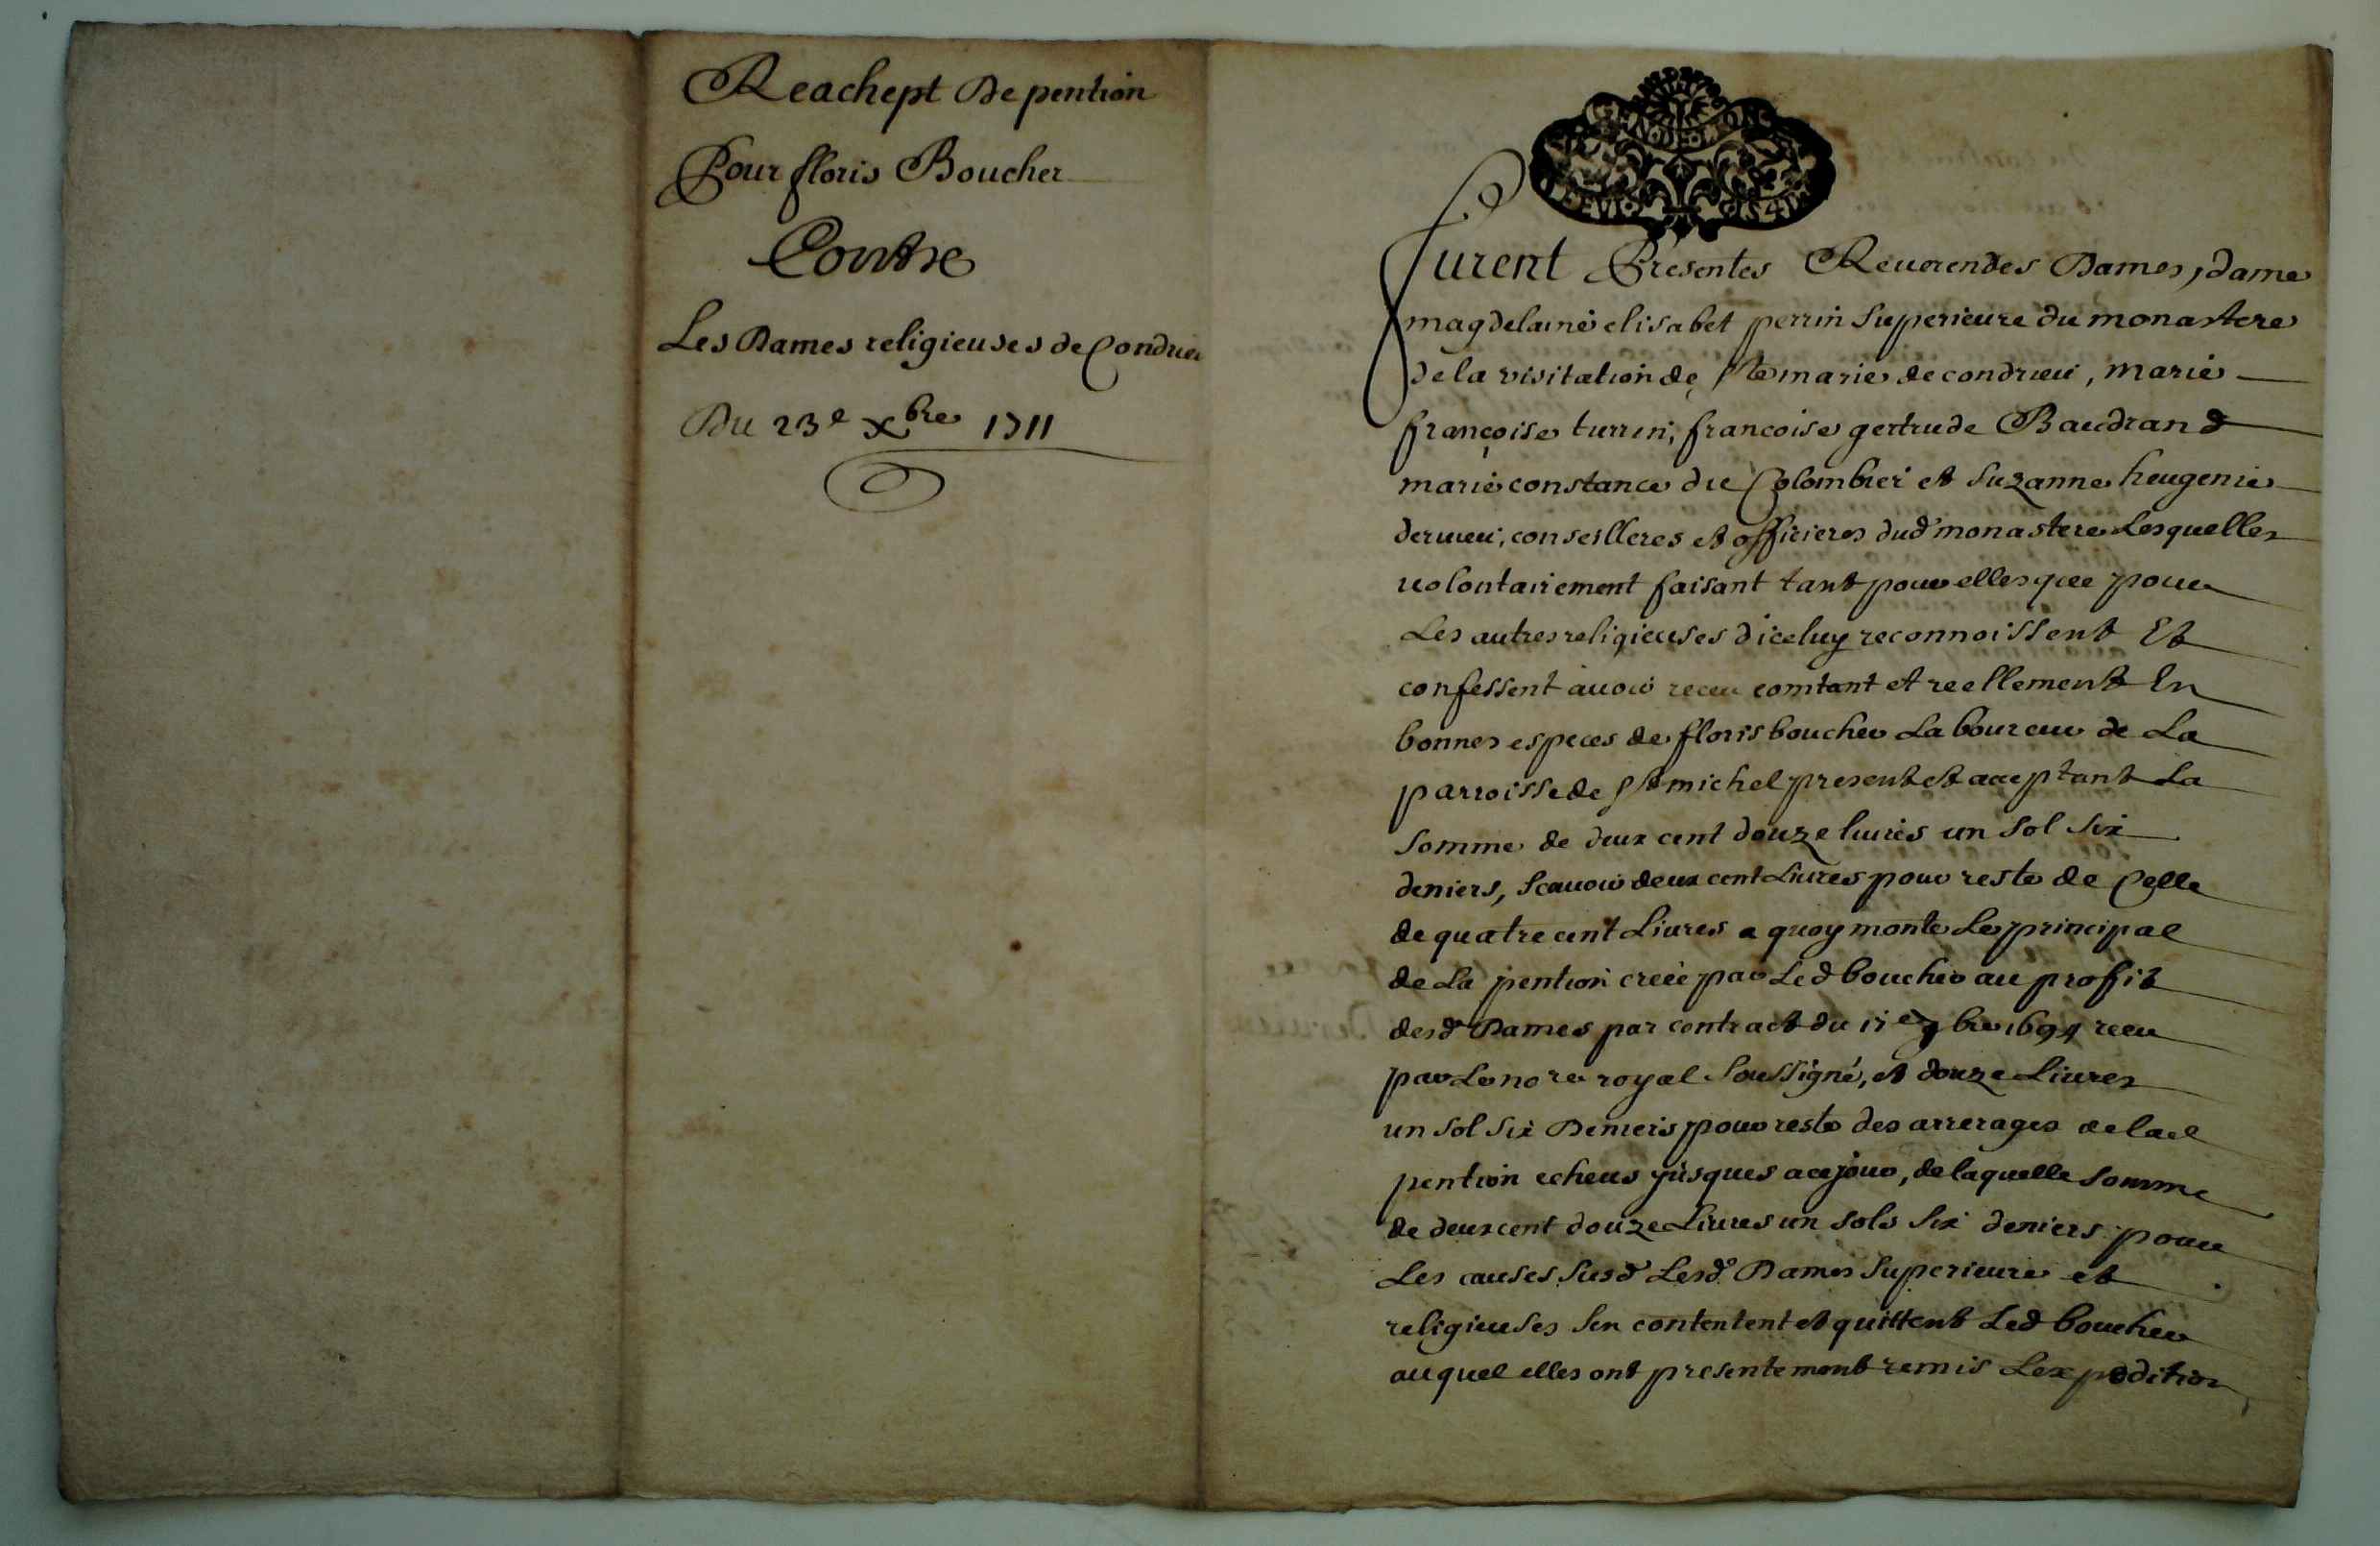 Reachept de pention
Pour floris Boucher
Contre
Les Dames religieuses de Condrieu
Du 23e Xbre 1711
GEN DE
furent Presentes Reuerendes Dames, dame
magdelaine elisabet perrin Superieure du monastere
de la visitation de Ste marie de condrieu, marie
françoise turrin, francoise gertrude Baudrand
marie constance du Colombier et Suzanne heugenie
deruieu, conseilleres et officieres dud monastere Lesquelles
uolontairement faisant tant pour elles que pour
Les autres religieuses d'iceluy reconnoissent Et
confessent auoir receu comtant et reellement En
bonnes especes de floris boucher Laboureur de La
parroisse de St michel present et acceptant La
Somme de deux cent douze liures un Sol Six
deniers, Scauoir deux cent Liures pour reste de Celle
de quatre cent Liures a quoy monte Le principal
de La pention creée par Led boucher au profit
desd Dames par contract du 9bre 1694 receu
par Le nore royal Soussigné, et douze Liures
un Sol Six Deniers pour reste des arrerages de lad
pention echeus jusques a ce jour, de laquelle Somme
de deux cent douze Liures un Sols Six deniers pour
Les causes Susd Lesd Dames Superieure et
religieuses Sen contentent et quittent Led boucher
auquel elles ont presentement remis Lexpedition